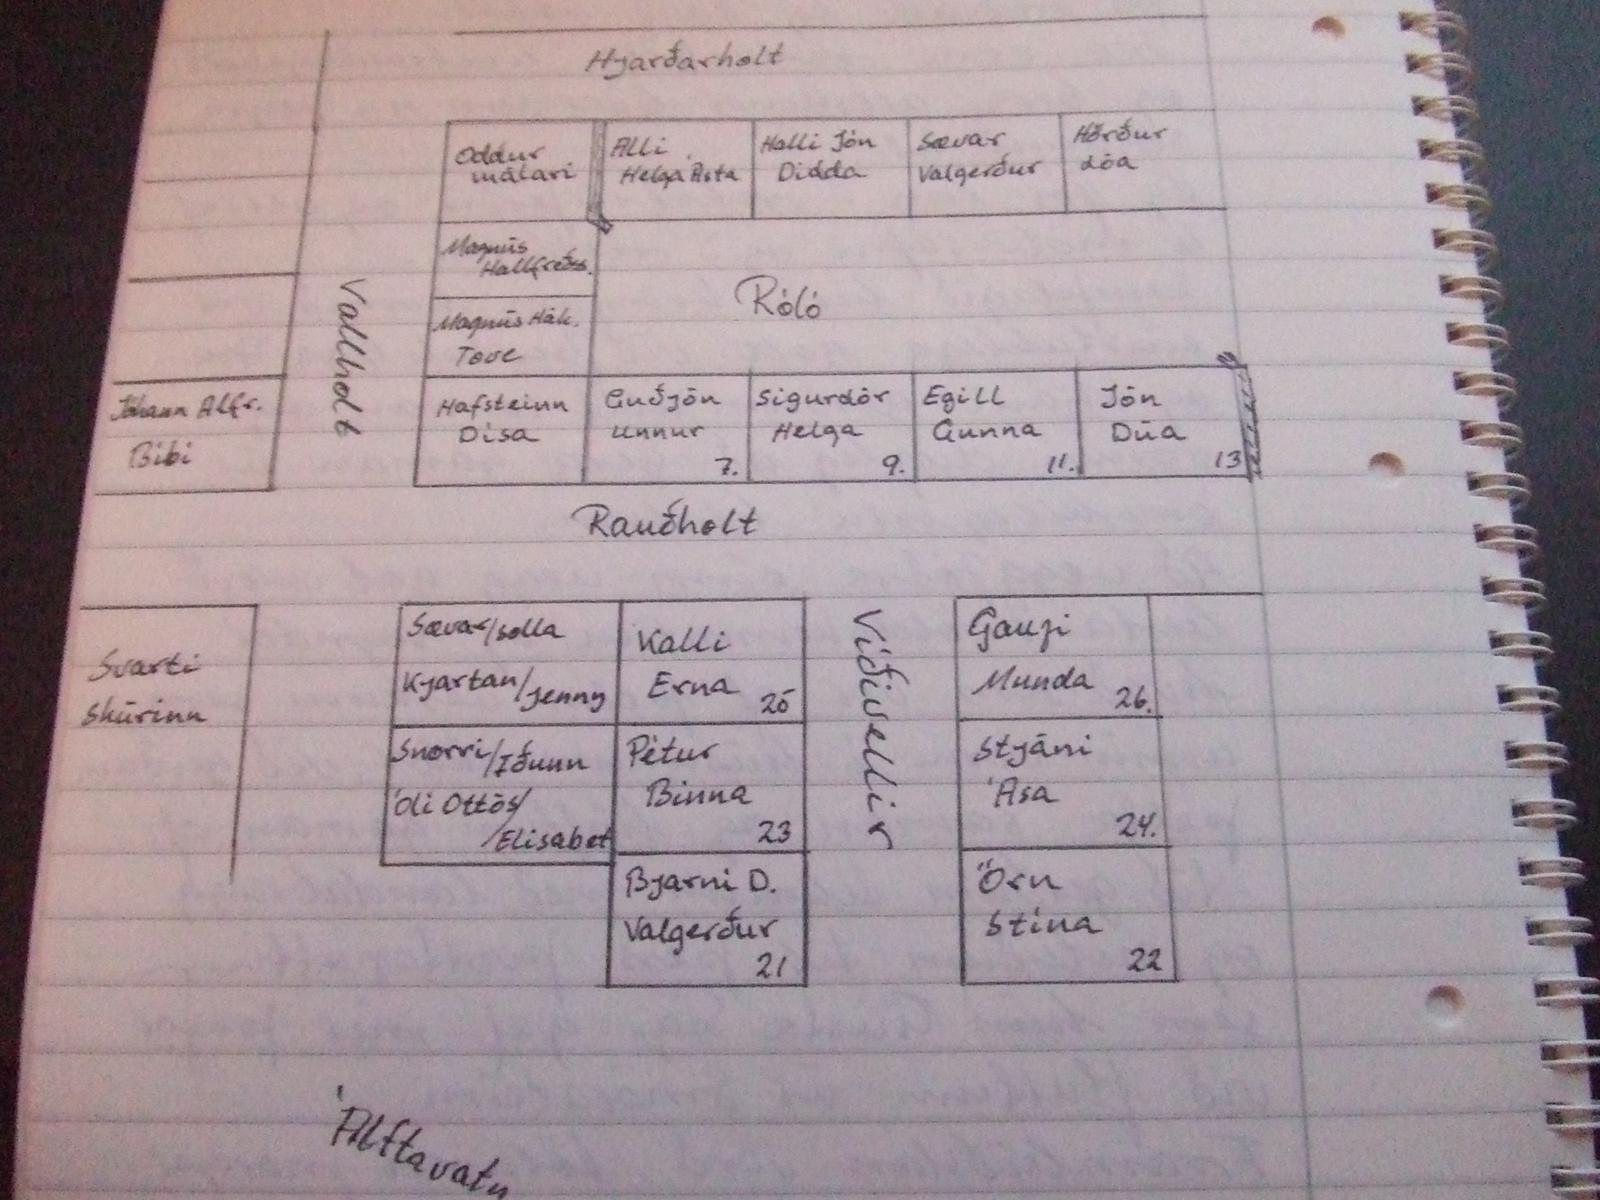 Hjarðarholt
Oddur
málari
Alli
Helga Ásta
Halli Jón
Didda
Sævar
Valgerður
Hörður
Lóa
Magnús
Hallfreðss.
Róló
Magnús Hák.
Tove
Vallholt
Jóhann Alfr.
Bíbí
Hafsteinn
Dísa
Guðjón
Unnur
7.
Sigurdór
Helga
9.
Egill
Gunna
11.
Jón
Dúa
13
Rauðholt
Svarti
skúrinn
Sævar/Solla
Kjartan/Jenny
Kalli
Erna
25
Snorri/Iðunn
Óli Ottós/
/Elisabet
Pétur
Binna
23
Bjarni D.
Valgerður
21
Víðivellir
Gauji
Munda
26.
Stjáni
Ása
24.
Örn
Stína
22
Álftavatn